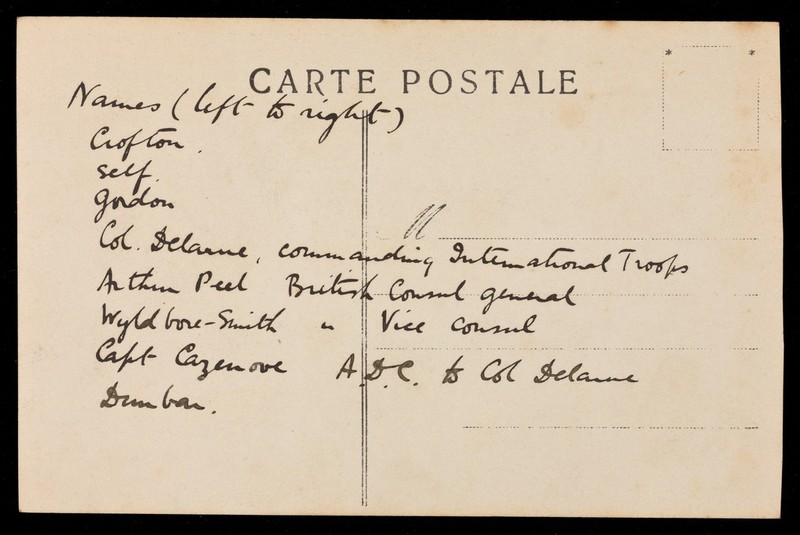 CARTE POSTALE
Names (left to right)
Crofton.
self.
Gordon
Col. Delarue, commanding International Troops
Arthur Peel British Consul general
Wyldbore-Smith " Vice consul
Capt Cazenove A.D.C. to Col Delarue
Dunbar.